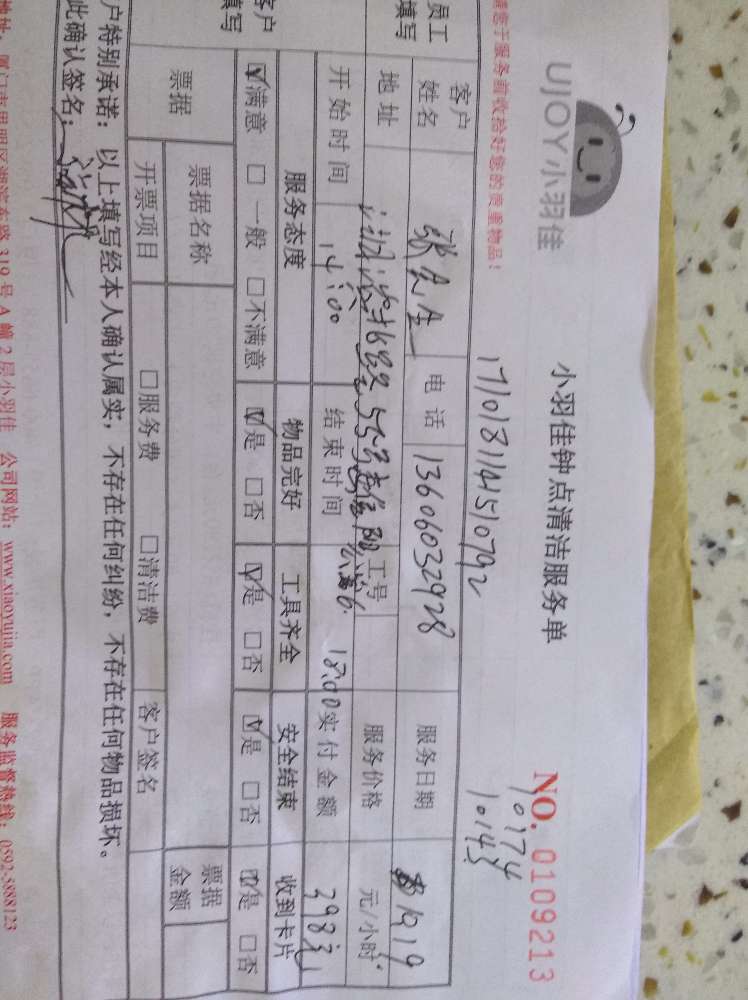 UJOY小羽佳
小羽佳钟点清洁服务单
NO. 0109213
10174
10143
1710181141510792
请您于服务前收拾好您的贵重物品！
员工填写
客户姓名 张先生 电话 13606032928 服务日期 10.19
地址 工号 服务价格 元/小时
开始时间 14:00 结束时间 18:00 实付金额 398元
客户填写
服务态度 物品完好 工具齐全 安全结束 收到卡片
☑满意 □一般 □不满意 ☑是 □否 ☑是 □否 ☑是 □否 ☑是 □否
票据 票据名称 票据金额
开票项目 □服务费 □清洁费 客户签名
户特别承诺：以上填写经本人确认属实，不存在任何纠纷，不存在任何物品损坏。
此确认签名：
地址：厦门市思明区湖滨东路319号A幢2层小羽佳 公司网站：www.xiaoyujia.com 服务监督热线：0592-5888123